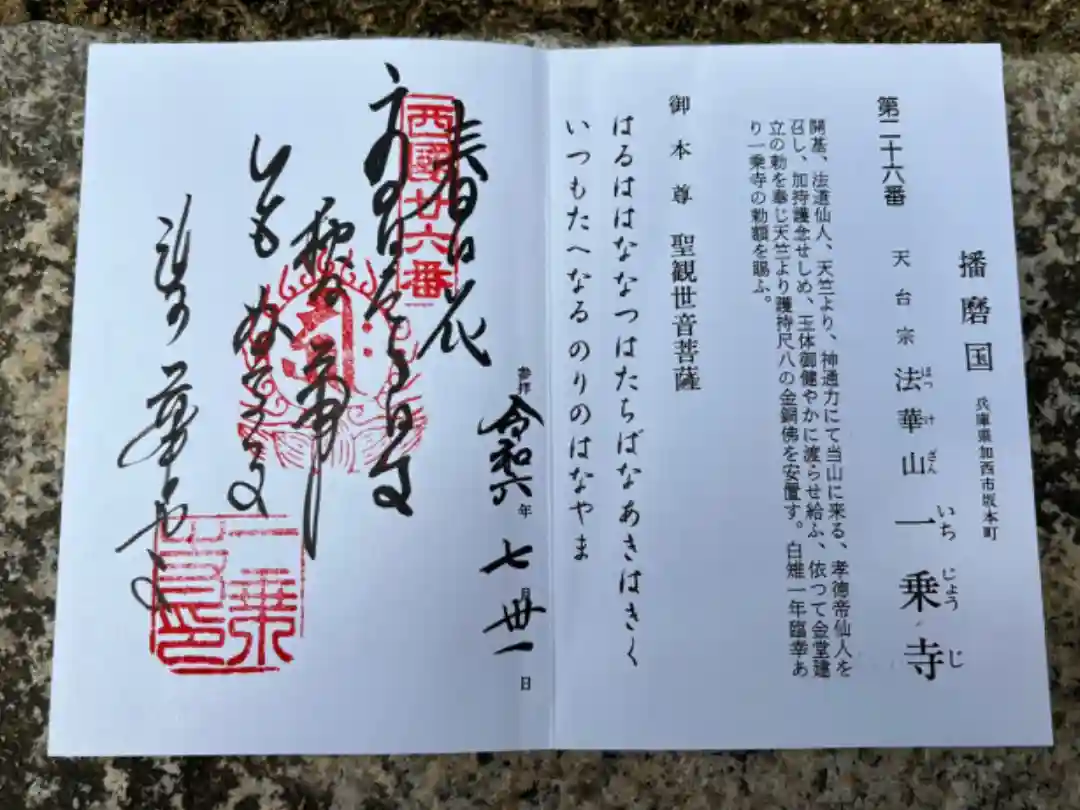 播磨国 兵庫県加西市坂本町
第二十六番 天台宗 法華山 一乗寺
ほっけざん いちじょうじ
開基、法道仙人、天竺より、神通力にて当山に来る、孝徳帝仙人を
召し、加持護念せしめ、玉体御健やかに渡らせ給ふ、依つて金堂建
立の勅を奉じ天竺より護持尺八の金銅佛を安置す。白雉一年臨幸あ
り一乗寺の勅額を賜ふ。
御本尊 聖観世音菩薩
はるははななつはたちばなあきはきく
いつもたへなるのりのはなやま
参拝 令和六年 七月 卅一日
西國廿六番